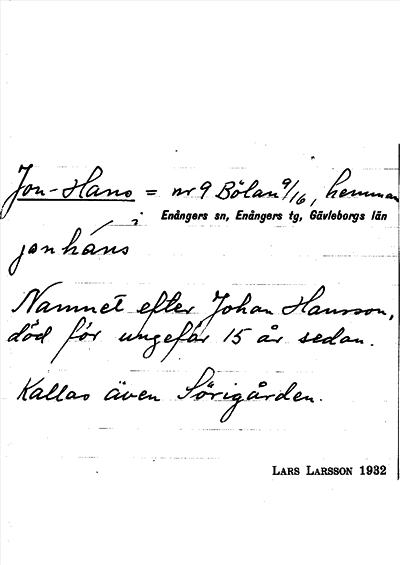 Jon-Hans = nr 9 Bölan 9/16, hemman
Enångers sn, Enångers tg, Gävleborgs län
jonháns
Namnet efter Johan Hansson,
död för ungefär 15 år sedan.
Kallas även Sörigården.
LARS LARSSON 1932